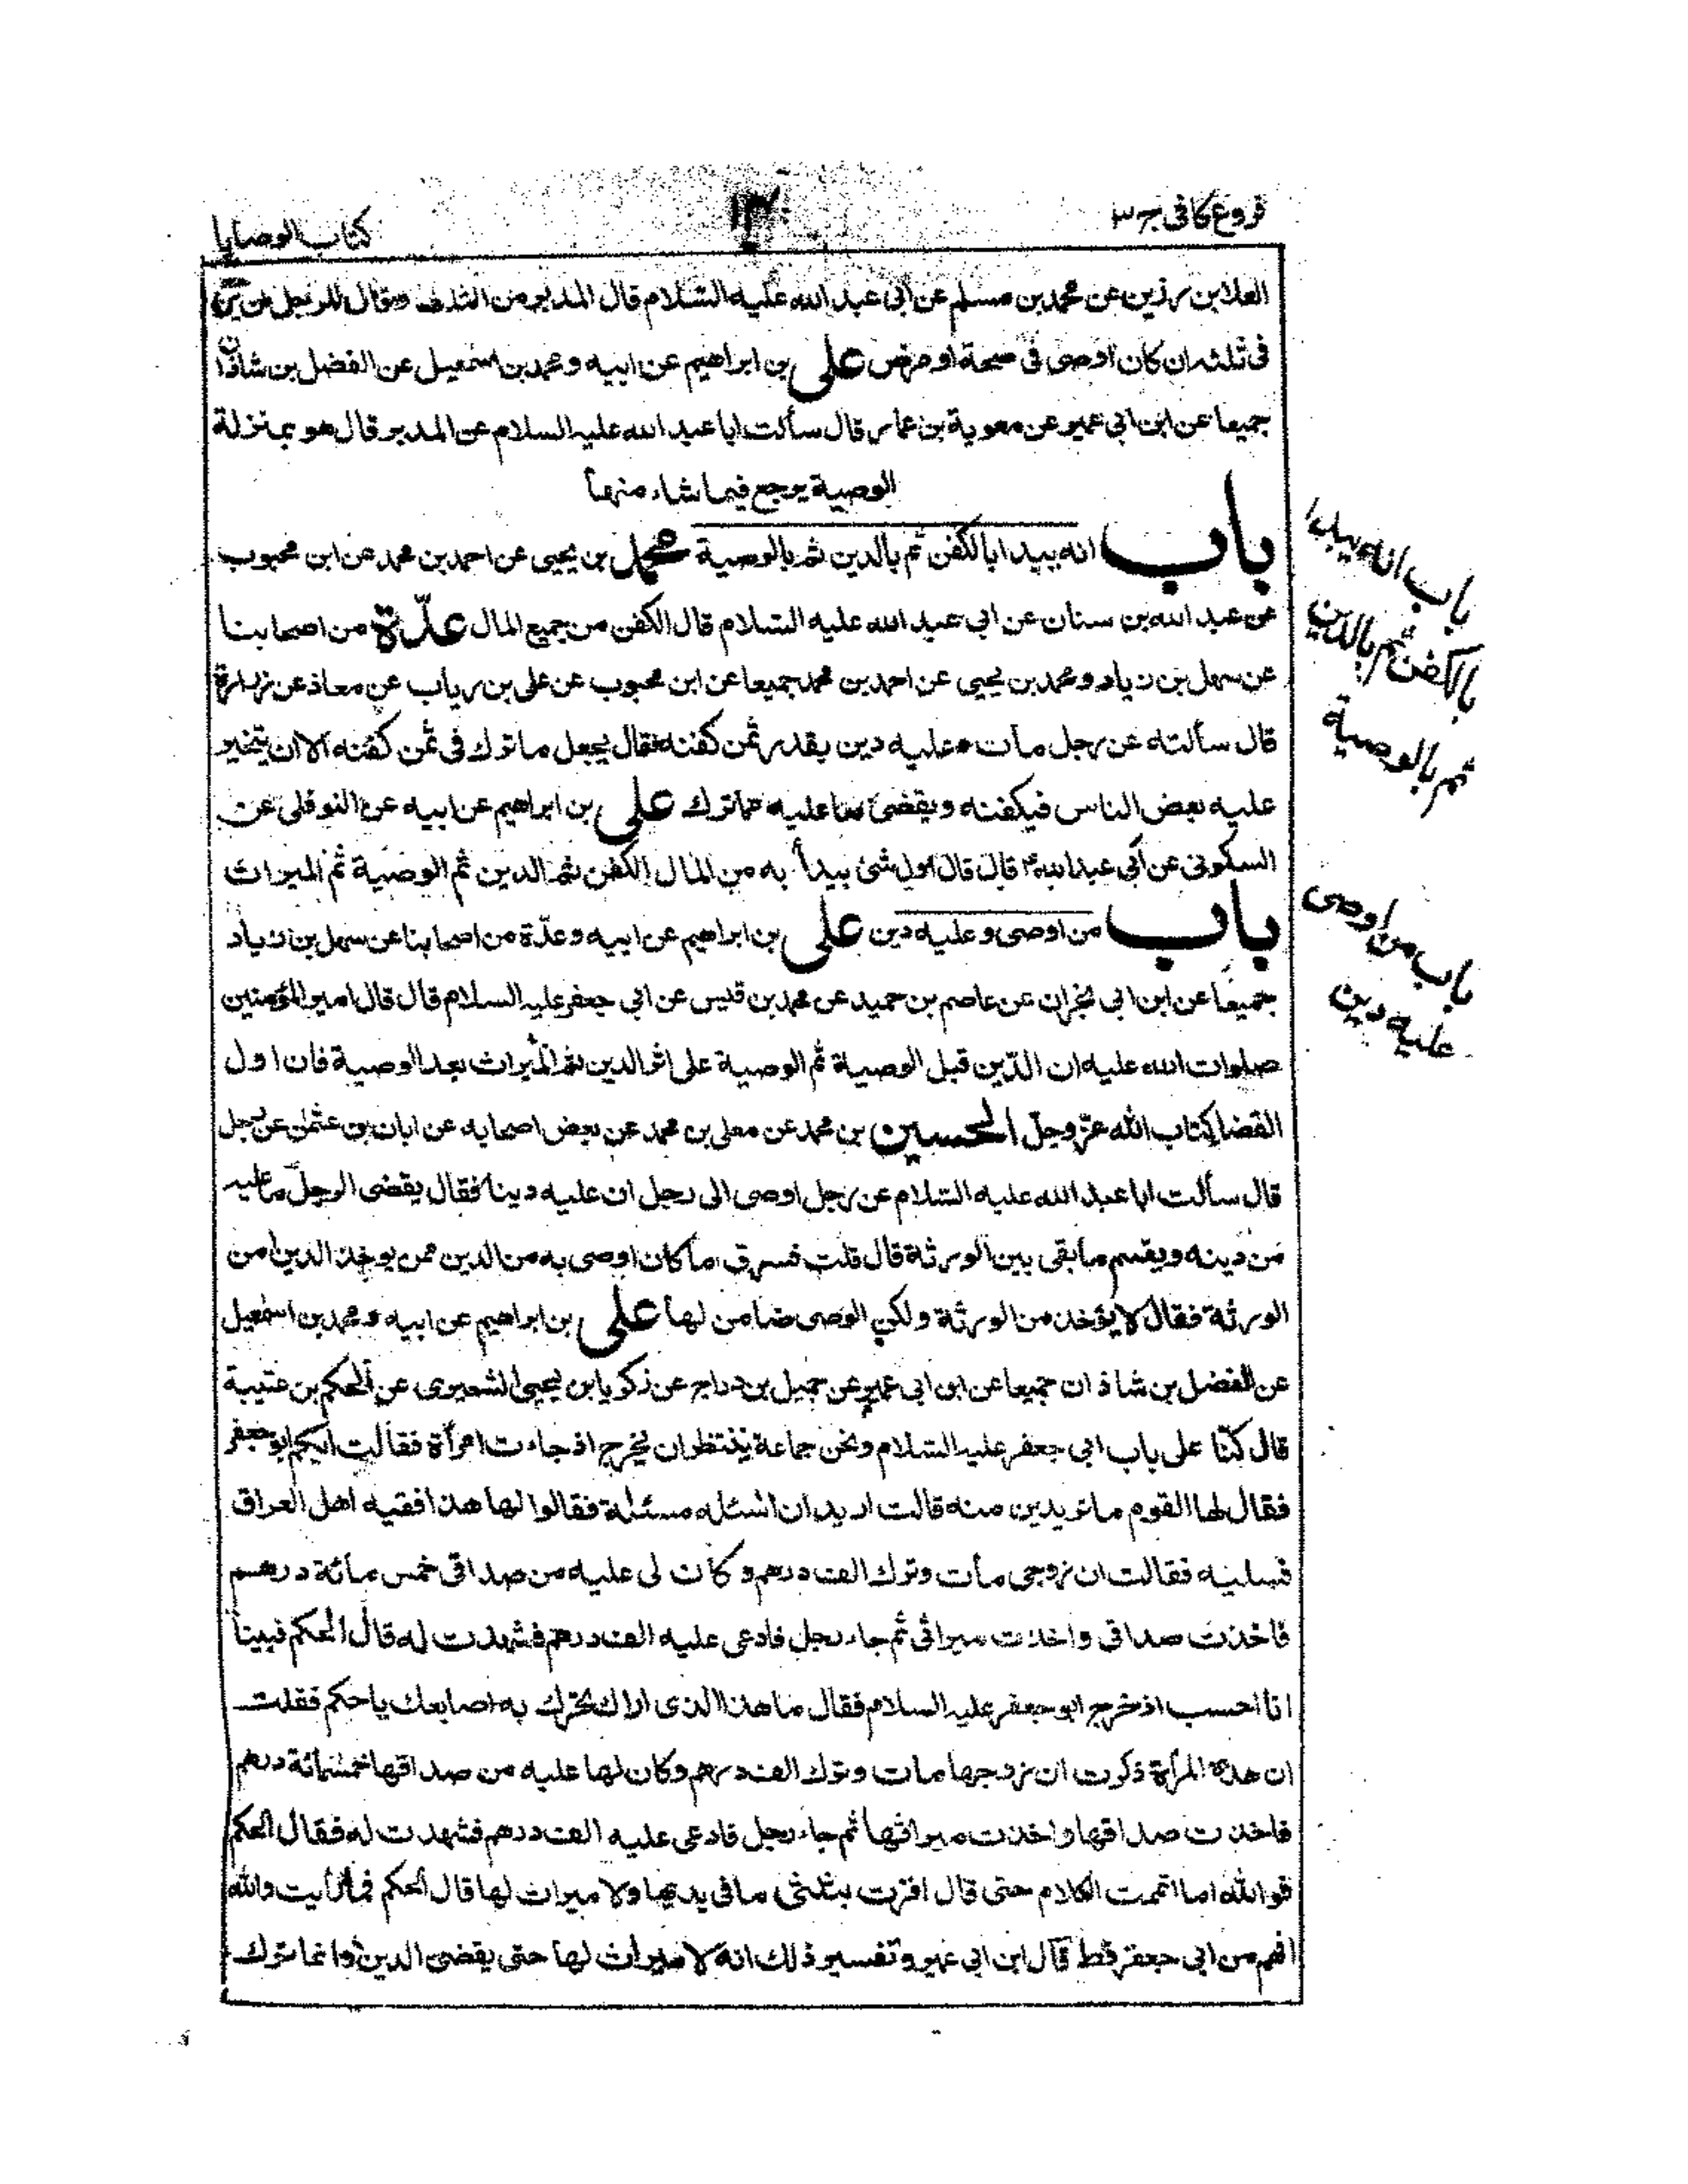 فروع كافى ج ٣
كتاب الوصايا
العلا بن رزين عن محمد بن مسلم عن ابى عبد الله عليه السلام قال المدبر من الثلث وقال للرجل ان يرجع
فى ثلثه ان كان اوصى فى صحة او مرض على بن ابراهيم عن ابيه ومحمد بن اسمعيل عن الفضل بن شاذان
جميعا عن ابن ابى عمير عن معوية بن عمار قال سألت ابا عبد الله عليه السلام عن المدبر قال هو بمنزلة
الوصية يرجع فيما شاء منها
باب انه يبدا بالكفن ثم بالدين ثم بالوصية محمد بن يحيى عن احمد بن محمد عن ابن محبوب
عن عبد الله بن سنان عن ابى عبد الله عليه السلام قال الكفن من جميع المال عدّة من اصحابنا
عن سهل بن زياد ومحمد بن يحيى عن احمد بن محمد جميعا عن ابن محبوب عن على بن رياب عن معاذ عن زرارة
قال سألته عن رجل مات وعليه دين بقدر ثمن كفنه فقال يجعل ما ترك فى ثمن كفنه الا ان يتجر
عليه بعض الناس فيكفنه ويقضى ما عليه مما ترك على بن ابراهيم عن ابيه عن النوفلى عن
السكونى عن ابى عبد الله ع قال قال اول شئ يبدأ به من المال الكفن ثم الدين ثم الوصية ثم الميراث
باب من اوصى وعليه دين على بن ابراهيم عن ابيه وعدّة من اصحابنا عن سهل بن زياد
جميعا عن ابن ابى نجران عن عاصم بن حميد عن محمد بن قيس عن ابى جعفر عليه السلام قال قال امير المؤمنين
صلوات الله عليه ان الدّين قبل الوصية ثم الوصية على اثر الدين ثم الميراث بعد الوصية فان اول
القضا كتاب الله عزّ وجلّ الحسين بن محمد عن معلى بن محمد عن بعض اصحابه عن ابان بن عثمان عن رجل
قال سألت ابا عبد الله عليه السلام عن رجل اوصى الى رجل ان عليه دينا فقال يقضى الرجل ما عليه
من دينه ويقسم ما بقى بين الورثة قال قلت فسرق ما كان اوصى به من الدين ممن يوخذ الدين امن
الورثة فقال لا يؤخذ من الورثة ولكن الوصى ضامن لها على بن ابراهيم عن ابيه ومحمد بن اسمعيل
عن الفضل بن شاذان جميعا عن ابن ابى عمير عن جميل بن دراج عن زكريا بن يحيى الشعيرى عن الحكم بن عتيبة
قال كنّا على باب ابى جعفر عليه السلام ونحن جماعة ننتظر ان يخرج اذ جاءت امرأة فقالت ايكم ابو جعفر
فقال لها القوم ما تريدين منه قالت اريد ان اسئله مسئلة فقالوا لها هذا فقيه اهل العراق
فسليه فقالت ان زوجى مات وترك الف درهم وكان لى عليه من صداقى خمس مائة درهم
فاخذت صداقى واخذت ميراثى ثم جاء رجل فادعى عليه الف درهم فشهدت له قال الحكم فبينا
انا احسب اذ خرج ابو جعفر عليه السلام فقال ما هذا الذى اراك تحرك به اصابعك يا حكم فقلت
ان هذه المرأة ذكرت ان زوجها مات وترك الف درهم وكان لها عليه من صداقها خمسمائة درهم
فاخذت صداقها واخذت ميراثها ثم جاء رجل فادعى عليه الف درهم فشهدت له فقال الحكم
فو الله اما اتممت الكلام حتى قال اقرت بثلثى ما فى يديها ولا ميراث لها قال الحكم فما رأيت والله
افهم من ابى جعفر قط قال ابن ابى عمير وتفسير ذلك انه لا ميراث لها حتى يقضى الدين وانما ترك
باب انه يبدا
بالكفن ثم بالدين
ثم بالوصية
باب من اوصى
عليه دين